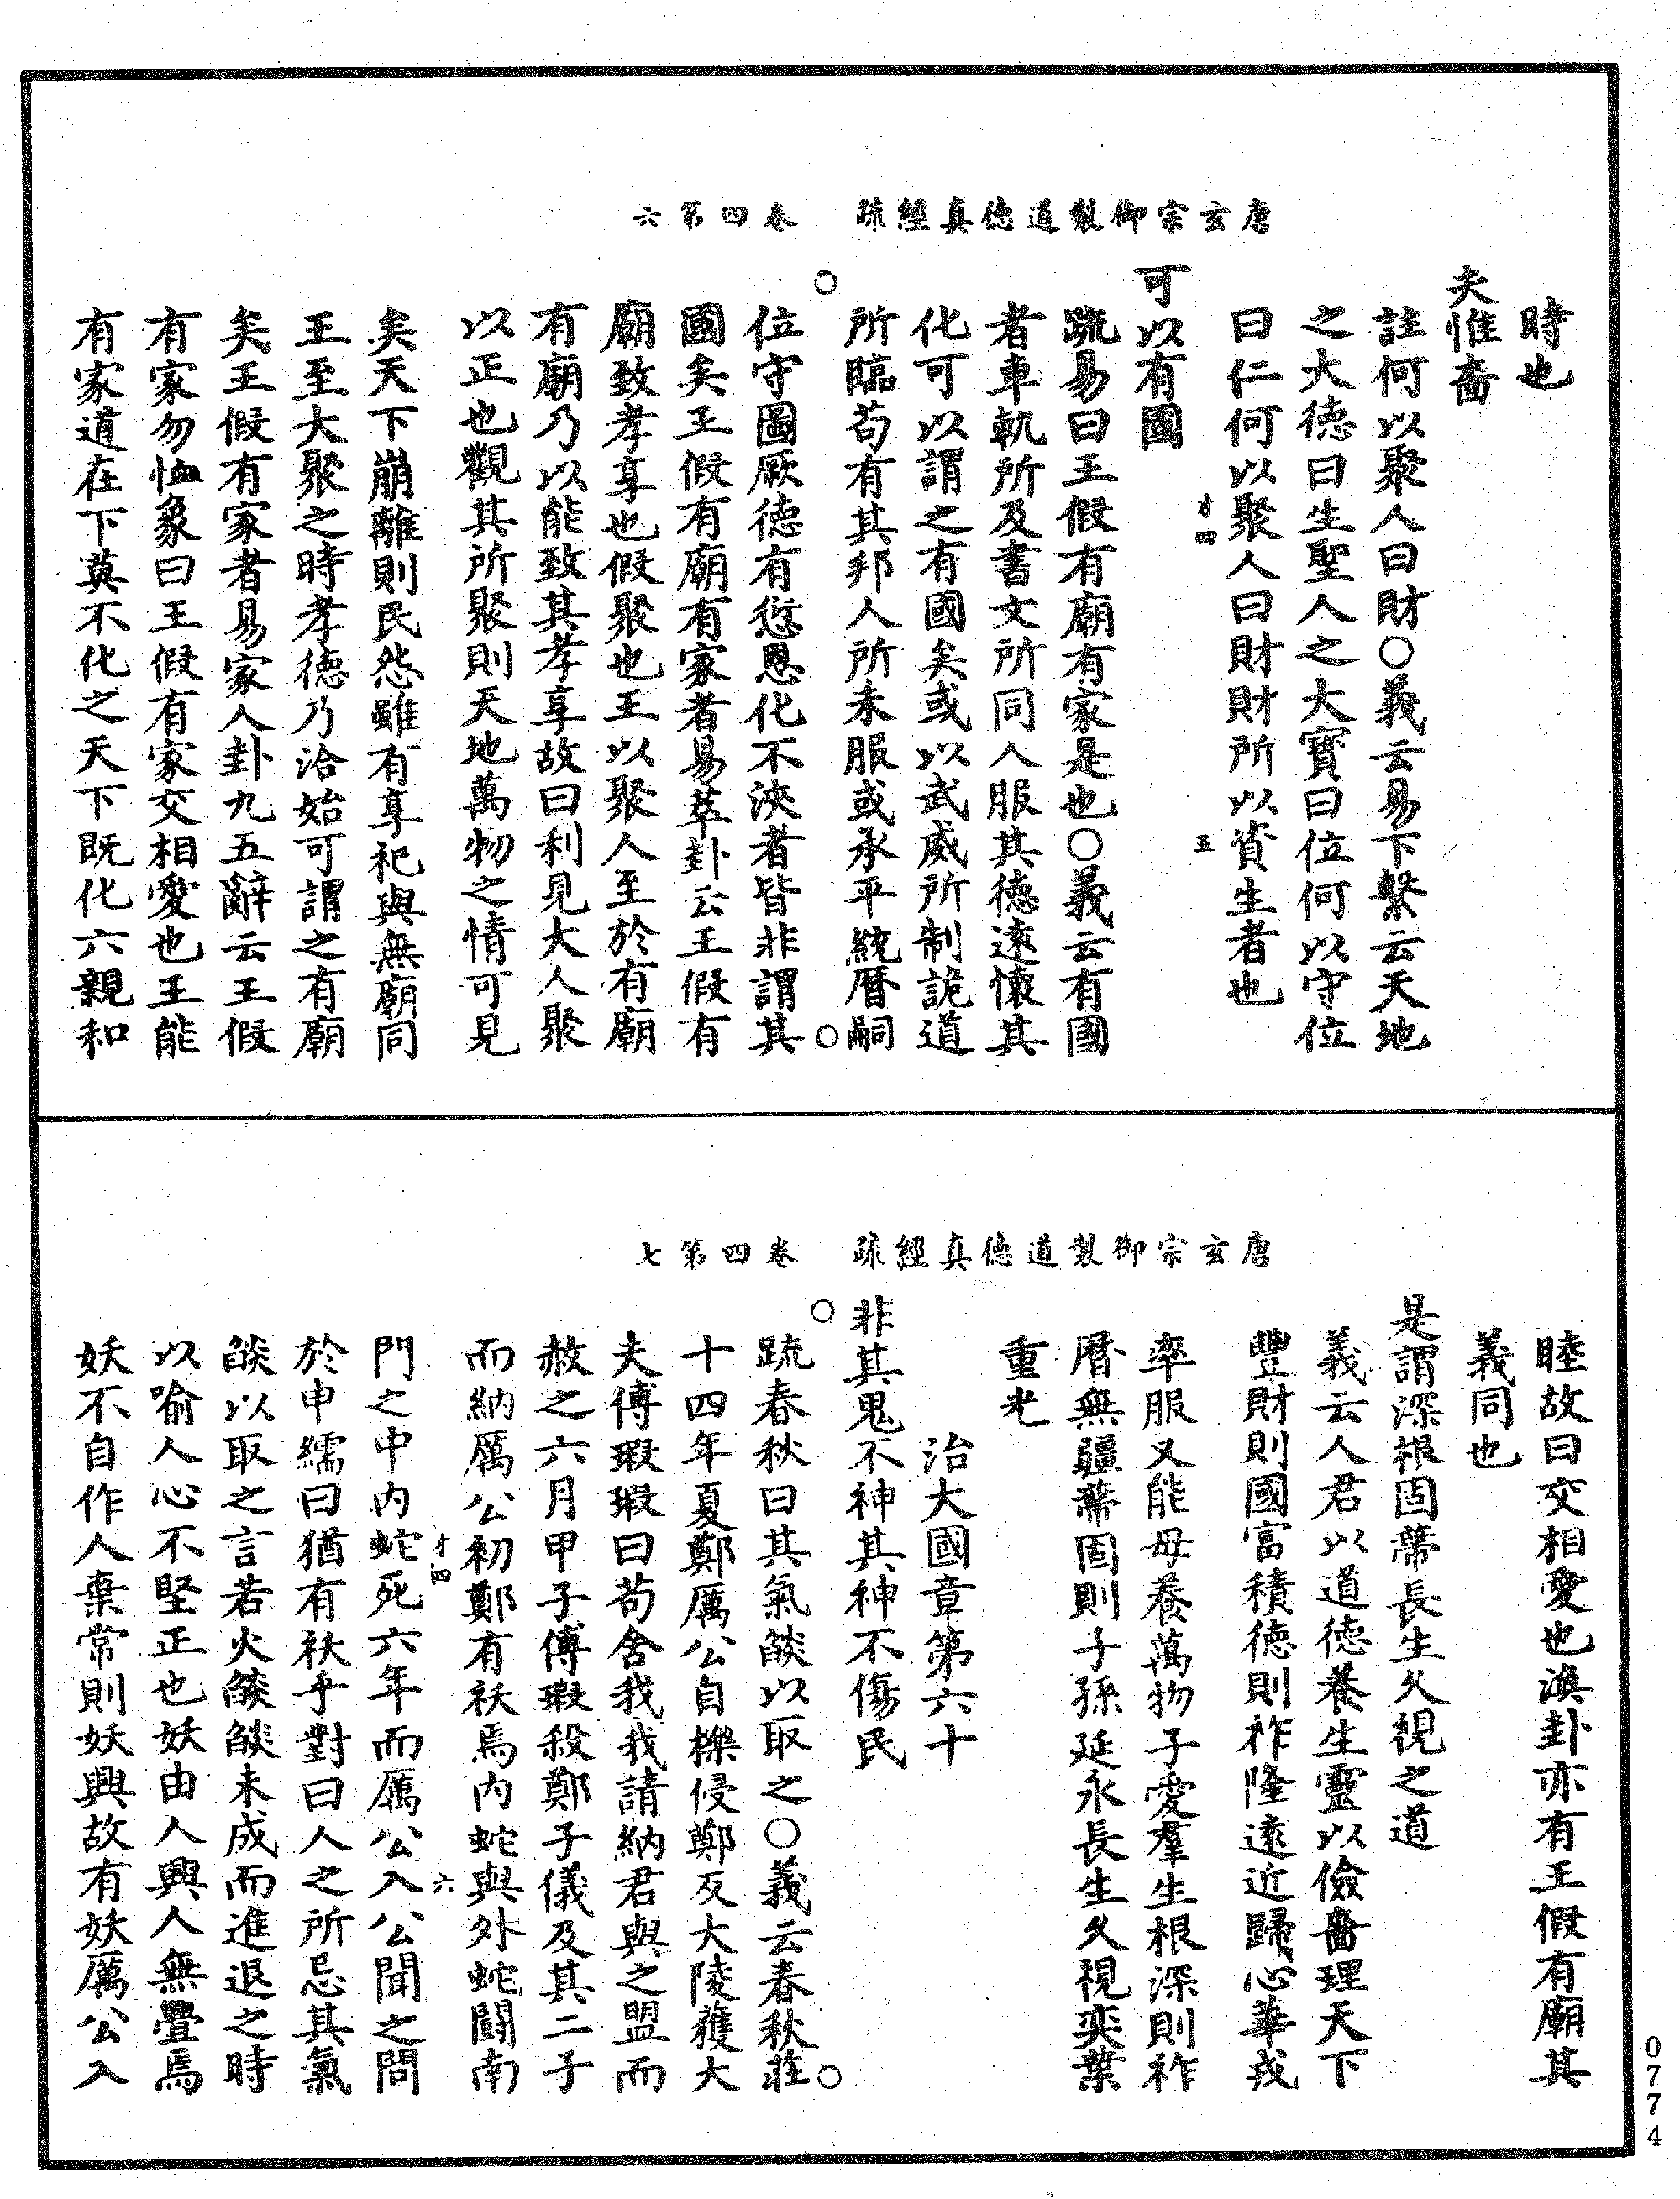 唐玄宗御製道德真經疏　卷四第六
時也
夫惟嗇
註何以聚人曰財○義云易下繫云天地
之大德曰生聖人之大寶曰位何以守位
曰仁何以聚人曰財財所以資生者也
才四　五
可以有國
䟽易曰王假有廟有家是也○義云有國
者車軌所及書文所同人服其德遠懷其
化可以謂之有國矣或以武威所制詭道
所臨苟有其邦人所未服或承平統曆嗣
位守圖厥德有愆恩化不浹者皆非謂其
國矣王假有廟有家者易萃卦云王假有
廟致孝享也假聚也王以聚人至於有廟
有廟乃以能致其孝享故曰利見大人聚
以正也觀其所聚則天地萬物之情可見
矣天下崩離則民怨雖有享祀與無廟同
王至大聚之時孝德乃洽始可謂之有廟
矣王假有家者易家人卦九五辭云王假
有家勿恤象曰王假有家交相愛也王能
有家道在下莫不化之天下既化六親和
唐玄宗御製道德真經疏　卷四第七
睦故曰交相愛也渙卦亦有王假有廟其
義同也
是謂深根固蔕長生久視之道
義云人君以道德養生靈以儉嗇理天下
豐財則國富積德則祚隆遠近歸心華戎
率服又能母養萬物子愛羣生根深則祚
曆無疆蔕固則子孫延永長生久視奕葉
重光
治大國章第六十
非其鬼不神其神不傷民
䟽春秋曰其氣燄以取之○義云春秋莊
十四年夏鄭厲公自櫟侵鄭反大陵獲大
夫傅瑕瑕曰苟舍我我請納君與之盟而
赦之六月甲子傅瑕殺鄭子儀及其二子
而納厲公初鄭有祅焉內蛇與外蛇鬬南
才四　六
門之中內蛇死六年而厲公入公聞之問
於申繻曰猶有祅乎對曰人之所忌其氣
燄以取之言若火燄燄未成而進退之時
以喻人心不堅正也妖由人興人無舋焉
妖不自作人棄常則妖興故有妖厲公入
0774